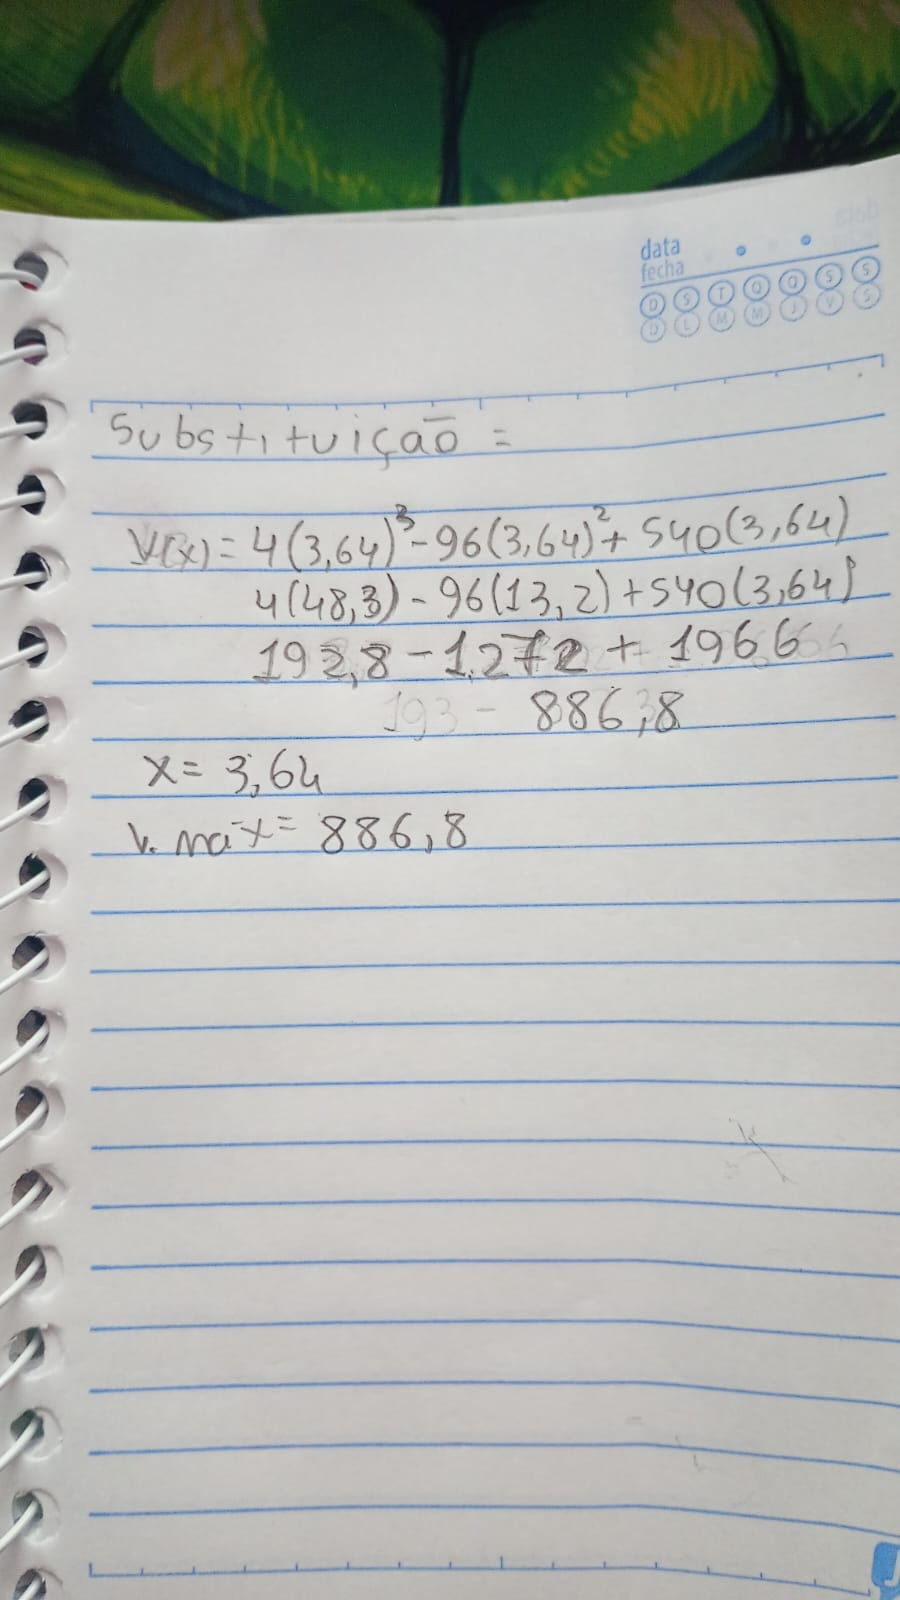 data
fecha
D S T Q Q S S
D L M M J V S
Substituição =
V(x) = 4(3,64)³ - 96(3,64)² + 540(3,64)
4(48,3) - 96(13,2) + 540(3,64)
192,8 - 1.272 + 1966
193 - 886,8
x = 3,64
V. max = 886,8